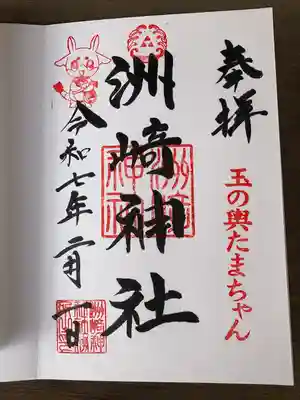 奉拝
玉の輿たまちゃん
洲崎神社
洲崎神社
令和七年二月一日